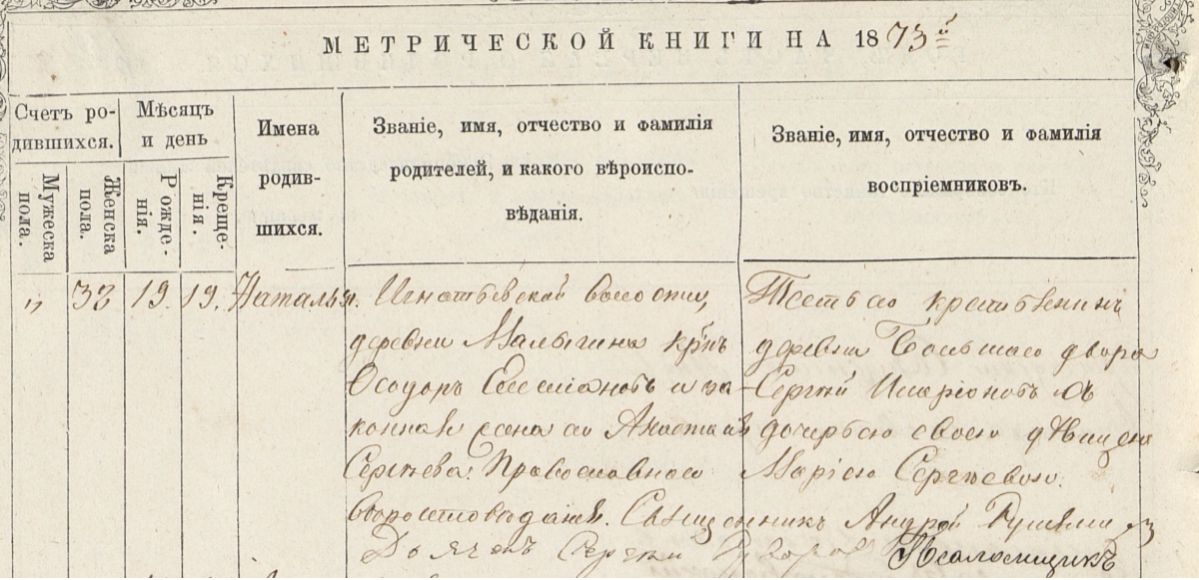 МЕТРИЧЕСКОЙ КНИГИ НА 1873й
Счетъ ро-
дившихся.
Мѣсяцъ
и день
Имена
родив-
шихся.
Званіе, имя, отчество и фамилія
родителей, и какого вѣроиспо-
вѣданія.
Званіе, имя, отчество и фамилія
воспріемниковъ.
Мужеска
пола.
Женска
пола.
Рожде-
нія.
Креще-
нія.
" 32 19. 19. Наталья.
Игнатьевской волости,
деревни Малыгина
Ѳеодоръ Емеліановъ и за-
конная жена его Анастасія
Сергѣева. Православнаго
вѣроисповѣданія.
Тестъ его крестьянинъ
деревни Большаго двора
Сергій Иларіоновъ съ
дочерью своею дѣвицею
Маріею Сергѣевою.
Священникъ Андрей
Дьячекъ Сергій Псаломщикъ